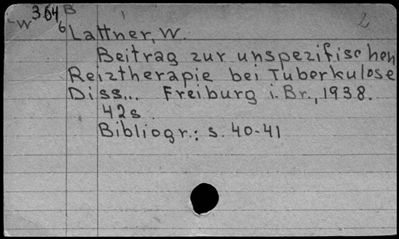 364 B
W 6 2
Lattner, W.
Beitrag zur unspezifischen
Reiztherapie bei Tuberkulose
Diss... Freiburg i. Br., 1938.
42s
Bibliogr.: s. 40-41